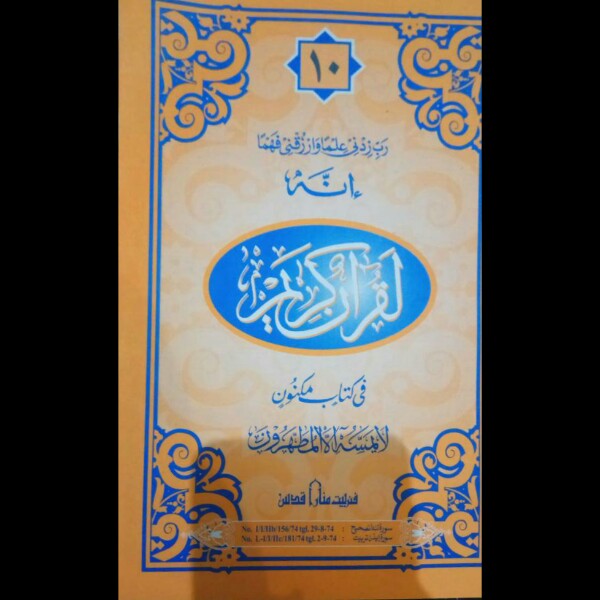 ١٠
رَبِّ زِدْنِي عِلْمًا وَارْزُقْنِي فَهْمًا
إِنَّهُ
لَقُرْآنٌ كَرِيمٌ
فِي كِتَابٍ مَكْنُونٍ
لَا يَمَسُّهُ إِلَّا الْمُطَهَّرُونَ
فنربيت منارا قدس
No. I/I/IIb/156/74 tgl. 29-8-74 : سورة تندا تصحيح
No. L-I/I/IIc/181/74 tgl. 2-9-74 :